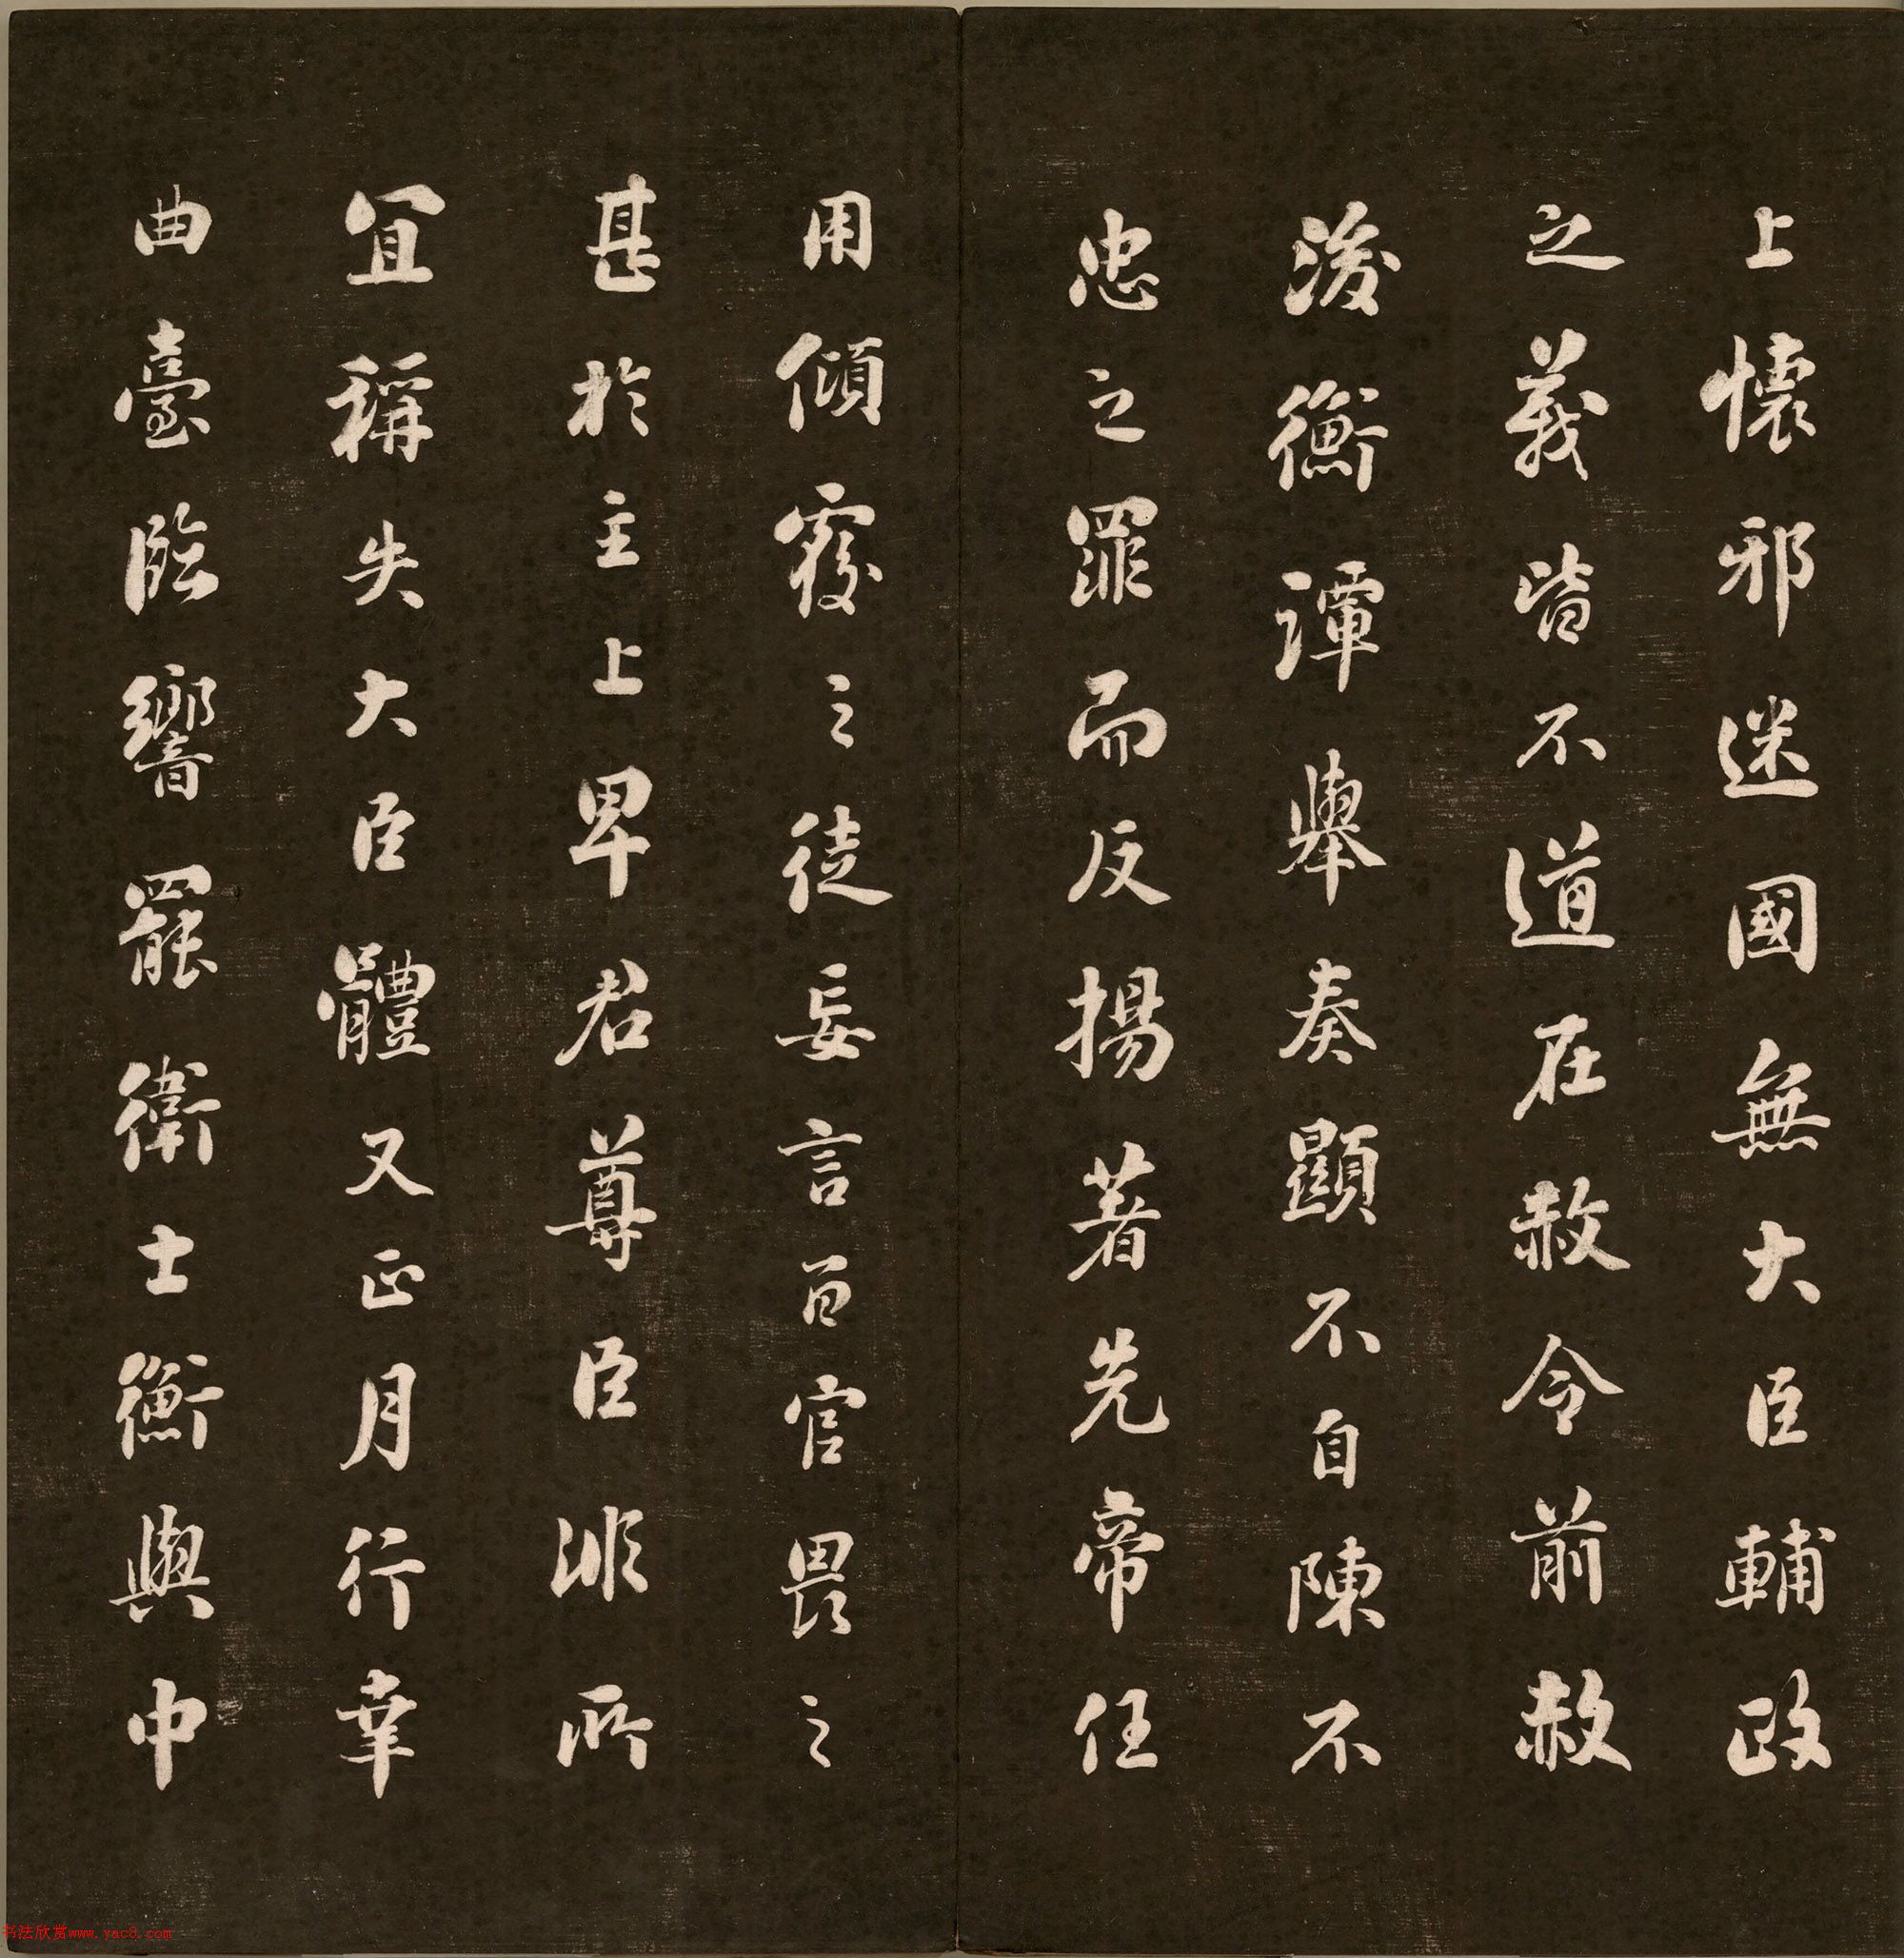 上懷邪迷國無大臣輔政
之義皆不道在赦令前赦
後衡譚舉奏顯不自陳不
忠之罪而反揚著先帝任
用傾覆之徒妄言百官畏之
甚於主上卑君尊臣非所
宜稱失大臣體又正月行幸
曲臺臨饗罷衛士衡與中
书法欣赏www.yac8.com